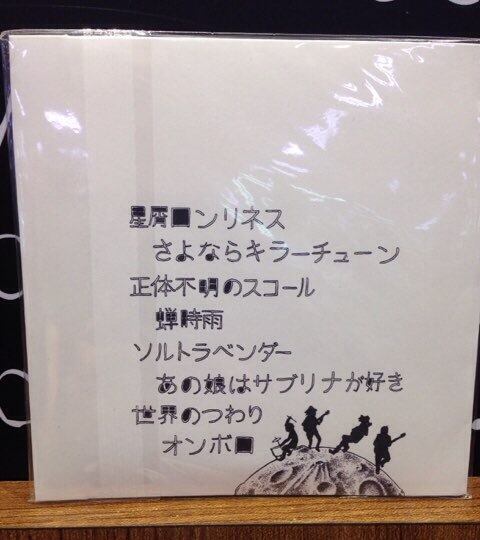 星屑ロンリネス
さよならキラーチューン
正体不明のスコール
蝉時雨
ソルトラベンダー
あの娘はサブリナが好き
世界のつわり
オンボロ